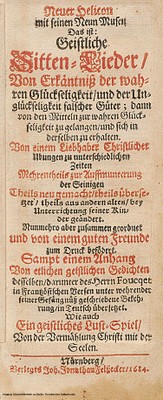 Neuer Helicon
mit seinen Neun Musen
Das ist:
Geistliche
Sitten-Lieder/
Von Erkäntniß der wah-
ren Glückseligkeit/ und der Un-
glückseligkeit falscher Güter; dann
von den Mitteln zur wahren Glück-
seligkeit zu gelangen/ und sich in
derselben zu erhalten.
Von einem Liebhaber Christlicher
Ubungen zu unterschiedlichen
Zeiten
Mehrentheils zur Auffmunterung
der Seinigen
Theils neu gemacht/ theils überse-
tzet/ theils aus andern alten/ bey
Unterrichtung seiner Kin-
der geändert.
Nunmehro aber zusammen geordnet
und von einem guten Freunde
zum Druck befördert.
Sampt einem Anhang
Von etlichen geistlichen Gedichten
desselben/ darinnen des Herrn Foucqet
in Frantzösischen Versen unter wehrender
seiner Gefängniß geschriebene Bekeh-
rung/ in Teutsch übersetzet.
Wie auch
Ein geistliches Lust-Spiel/
Von der Vermählung Christi mit der
Seelen.
Nürnberg/
Verlegts Joh. Jonathan Felßecker/ 1684.